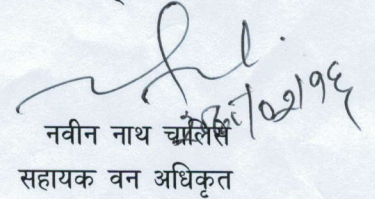 नवीन नाथ चालिसे
सहायक वन अधिकृत